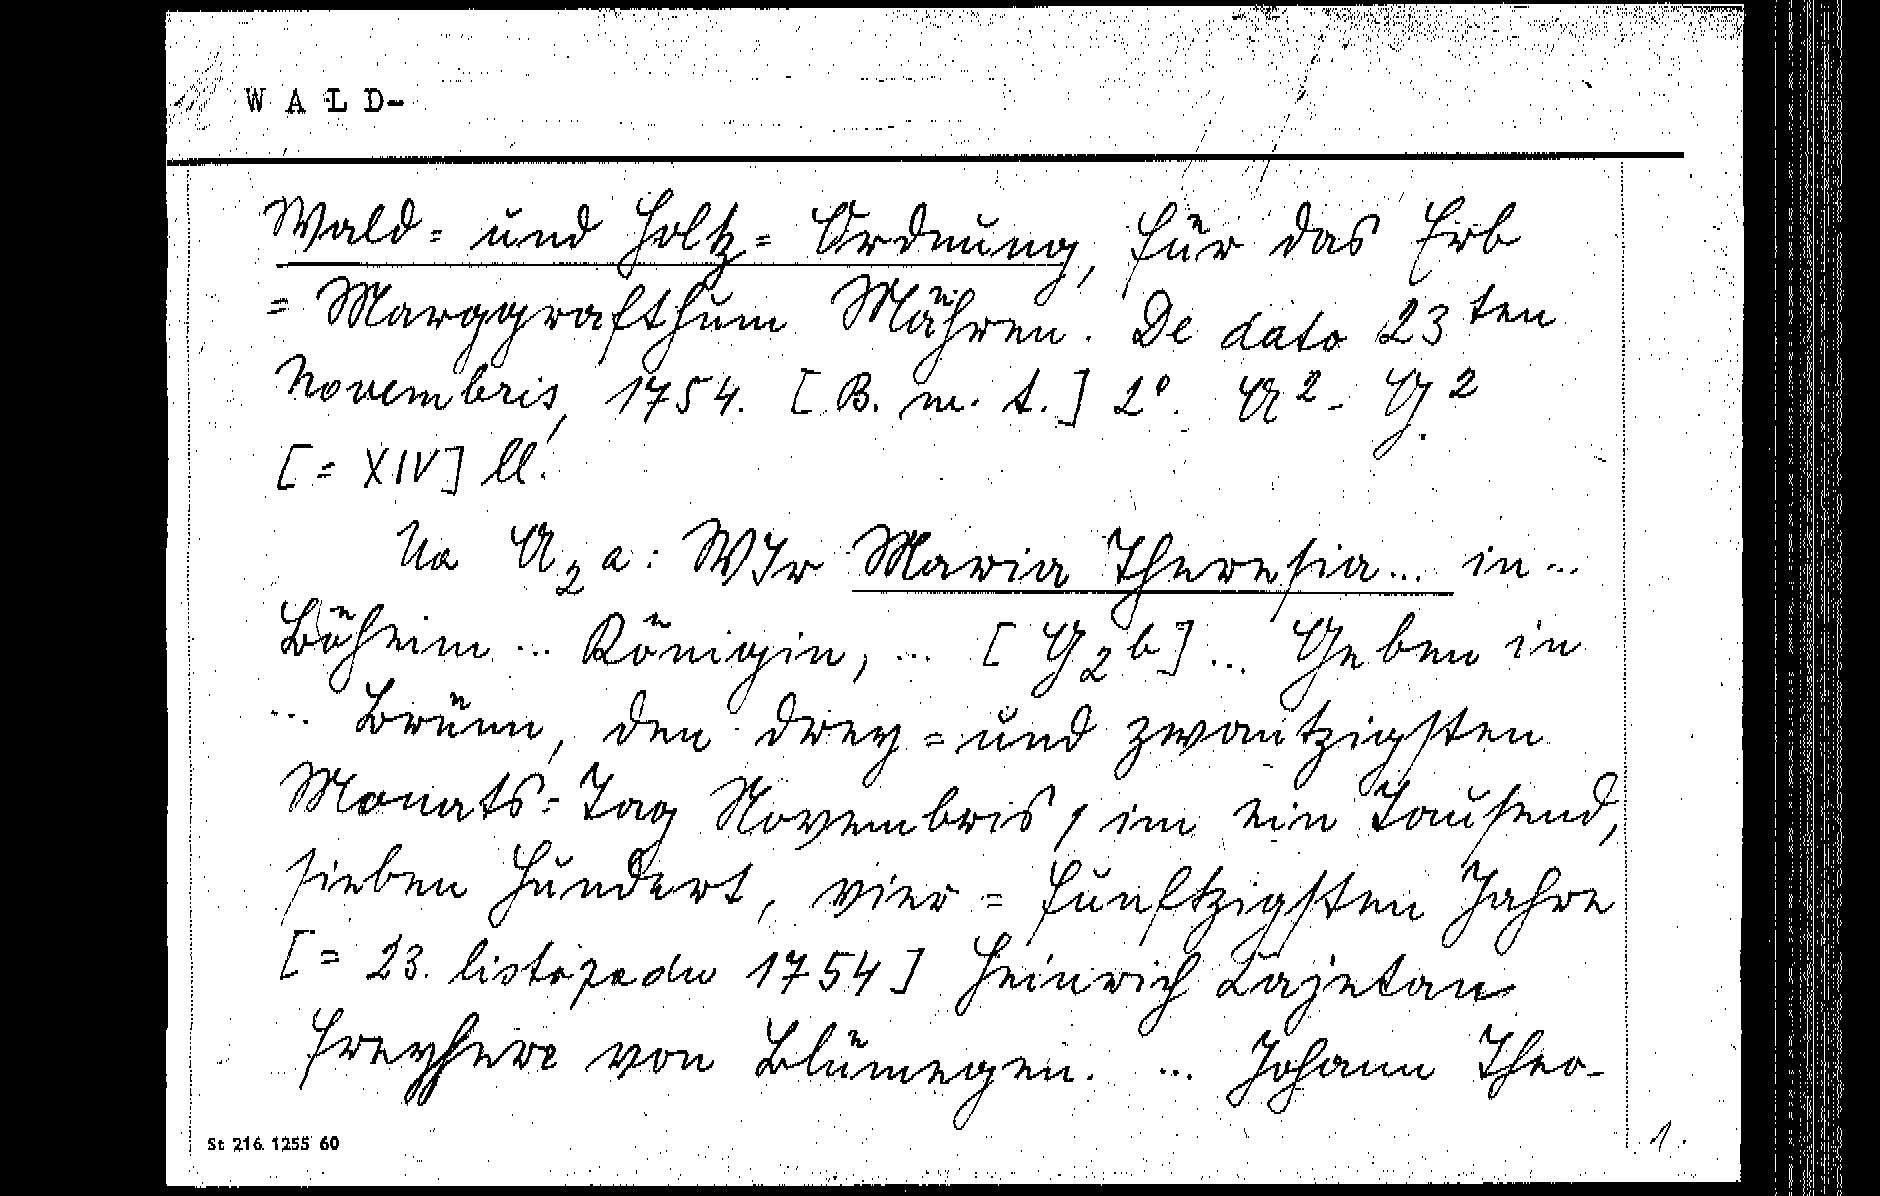 WALD-
Wald= und Holtz= Ordnung, für das Erb
= Marggrafthum Mähren. De dato 23ten
Novembris, 1754. [B. m. t.] 2°. A2 - G2
[= XIV] ll.
Na A2a: WIr Maria Theresia... in...
Böheim ... Königin, ... [G2b] ... Geben in
... Brünn, den drey=und zwantzigsten
Monats=Tag Novembris, im ein Tausend,
sieben Hundert, vier = funftzigsten Jahre
[= 23. listopadu 1754] Heinrich Cajetan
Freyherr von Blümegen. ... Johann Theo-
St 216. 1255 60
1.